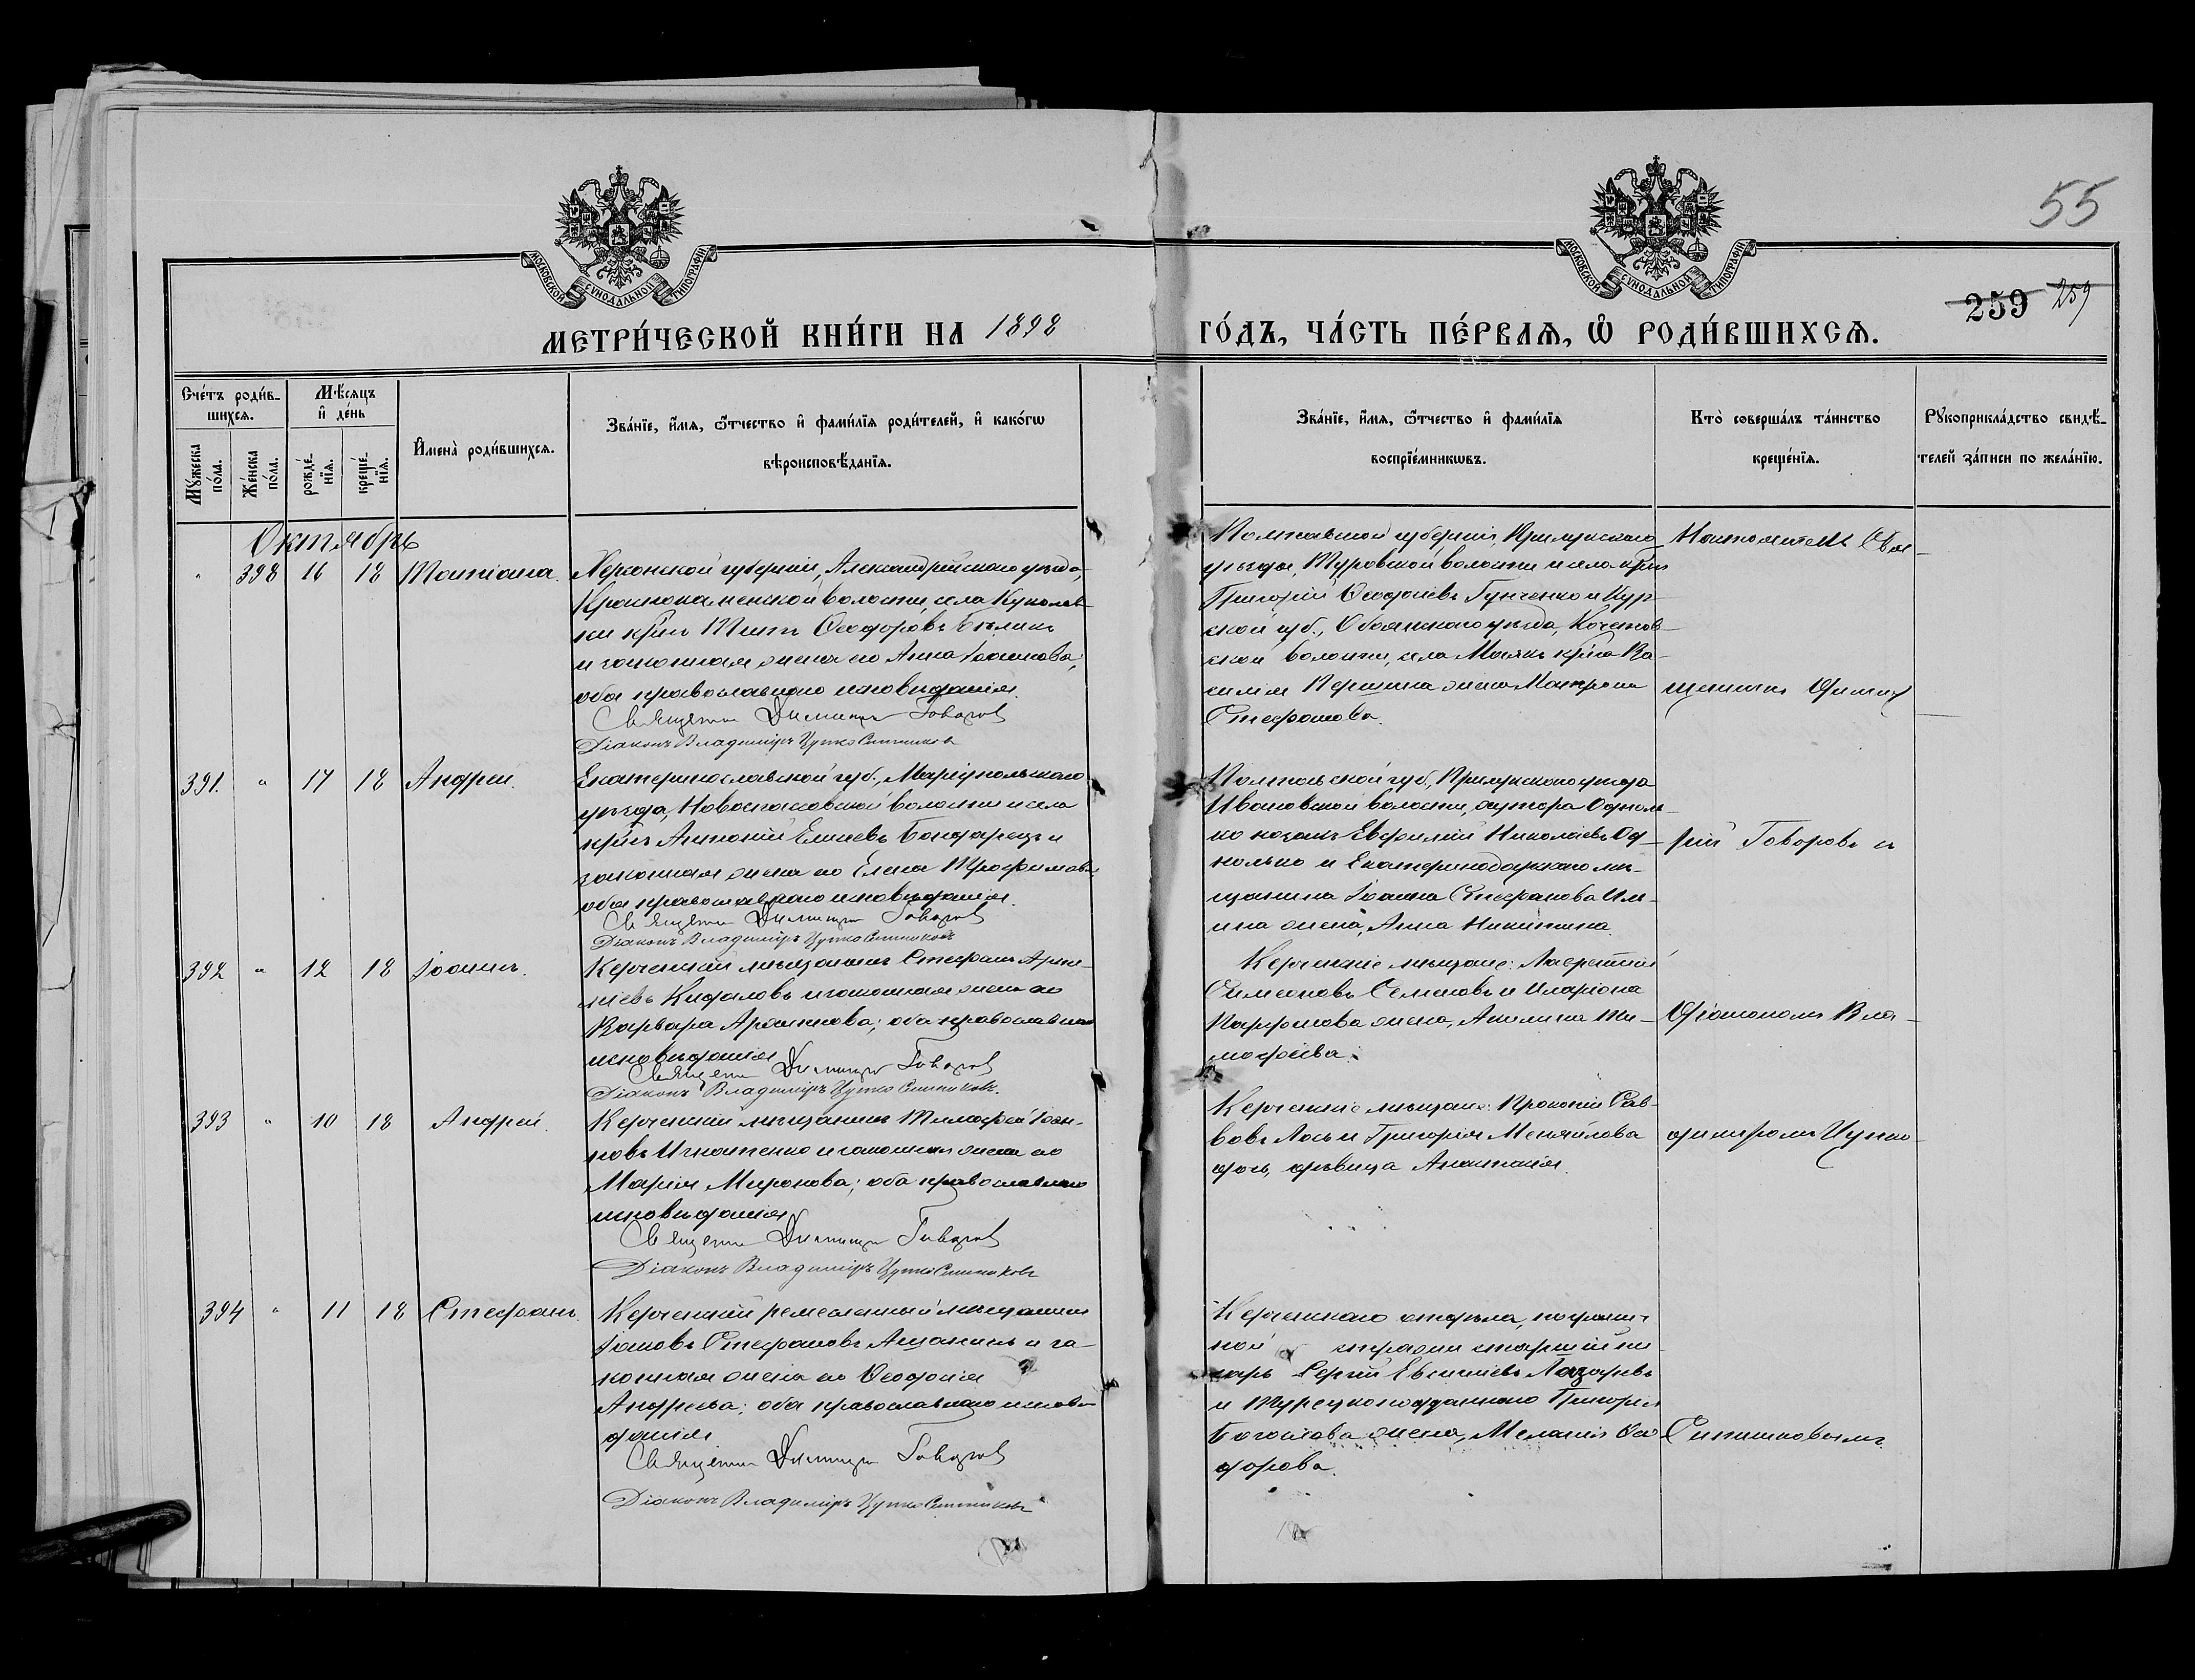 55
МОСКОВСКОЙ СѴНОДАЛЬНОЙ ТИПОГРАФІИ
МОСКОВСКОЙ СѴНОДАЛЬНОЙ ТИПОГРАФІИ
259 259
МЕТРИ́ЧЕСКОЙ КНИ́ГИ НА 1898 ГО́ДЪ, ЧА́СТЬ ПЕ́РВАѦ, Ѡ҆ РОДИ́ВШИХСѦ.
Сче́тъ роди́в-
шихсѧ.
Мꙋ́жеска
по́ла.
Же́нска
по́ла.
Мѣ́сѧцъ
и҆ де́нь
рожде́-
нїѧ.
креще́-
нїѧ.
И҆мена̀ роди́вшихсѧ.
Зва́нїе, и҆́мѧ, ѻ҆́тчество и҆ фами́лїѧ роди́телей, и҆ како́гѡ
вѣроисповѣ́данїѧ.
Зва́нїе, и҆́мѧ, ѻ҆́тчество и҆ фами́лїѧ
воспрїе́мникѡвъ.
Кто̀ соверша́лъ та́инство
креще́нїѧ.
Рꙋкоприкла́дство свидѣ́-
телей за́писи по жела́нїю.
Октябрь
" 398 16 18 Татіана.
Херсонской губерніи, Александрійскаго уѣзда,
Краснокаменской волости, села Куколов-
ки кр͠нъ Титъ Ѳеодоровъ Бѣликъ
и законная жена его Анна Іоаннова;
оба православнаго исповѣданія.
Священникъ Димитрій Говоровъ
Діаконъ Владиміръ Цупко Ситниковъ
Полтавской губерніи, Прилукскаго
уѣзда, Туровской волости и села кр͠нъ
Григорій Ѳеодосіевъ Гунченко и Кур-
ской губ., Обоянскаго уѣзда, Кочетов-
ской волости, села Маякъ кр͠на Ва-
силія Першина жена Матрона
Стефанова.
Настоятель Свя-
щенникъ Димит
391. " 17 18 Андрей.
Екатеринославской губ., Маріупольскаго
уѣзда, Новоспасовской волости и села
кр͠нъ Антоній Елисеевъ Бондарецъ и
законная жена его Елена Трофимова;
оба православнаго исповѣданія.
Священникъ Димитрій Говоровъ
Діаконъ Владиміръ Цупко Ситниковъ
Полтавской губ., Прилукскаго уѣзда
Ивановской волости, хутора Одноль-
ко казакъ Евфимій Николаевъ Од-
нолько и Екатеринодарскаго мѣ-
щанина Іоанна Стефанова Иль-
ина жена, Анна Никитина.
рій Говоровъ съ
392 " 12 18 Іоаннъ.
Керченскій мѣщанинъ Стефанъ
Кидаловъ и законная жена его
Варвара; оба православнаго
исповѣданія
Священникъ Димитрій Говоровъ
Діаконъ Владиміръ Цупко Ситниковъ.
Керченскіе мѣщане: Лаврентій
Симеоновъ Семеновъ и Иларіона
Парфенова жена, Акилина Ти-
мофеева.
Діакономъ Вла-
393 " 10 18 Андрей.
Керченскій мѣщанинъ Тимофей Іоан-
новъ Игнатенко и законная жена его
Марія Миронова; оба православнаго
исповѣданія
Священникъ Димитрій Говоровъ
Діаконъ Владиміръ Цупко Ситниковъ
Керченскіе мѣщане: Прокопій Сав-
вовъ Лось и Григорія Меняйлова
дочь, дѣвица Анастасія.
диміромъ Цупко-
394 " 11 18 Стефанъ.
Керченскій ремесленный мѣщанинъ
Іаковъ Стефановъ и за-
конная жена его Ѳеодосія
Андреева; оба православнаго исповѣ-
данія
Священникъ Димитрій Говоровъ
Діаконъ Владиміръ Цупко Ситниковъ
Керченскаго отдѣла, погранич-
ной стражи старшій пи-
сарь Сергій Лазаревъ
и Турецкоподданнаго Григорія
жена, Меланія Ѳео-
дорова.
Ситниковымъ.